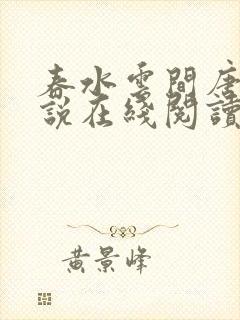 春水雲間唐
說在綫閱讀
黄景峰